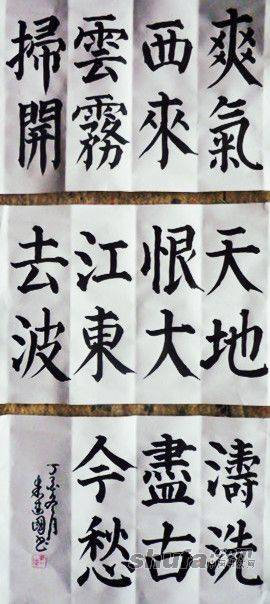 爽氣
西來
雲霧
掃開
天地
恨大
江東
去波
濤洗
盡古
今愁
丁亥冬月
shufa